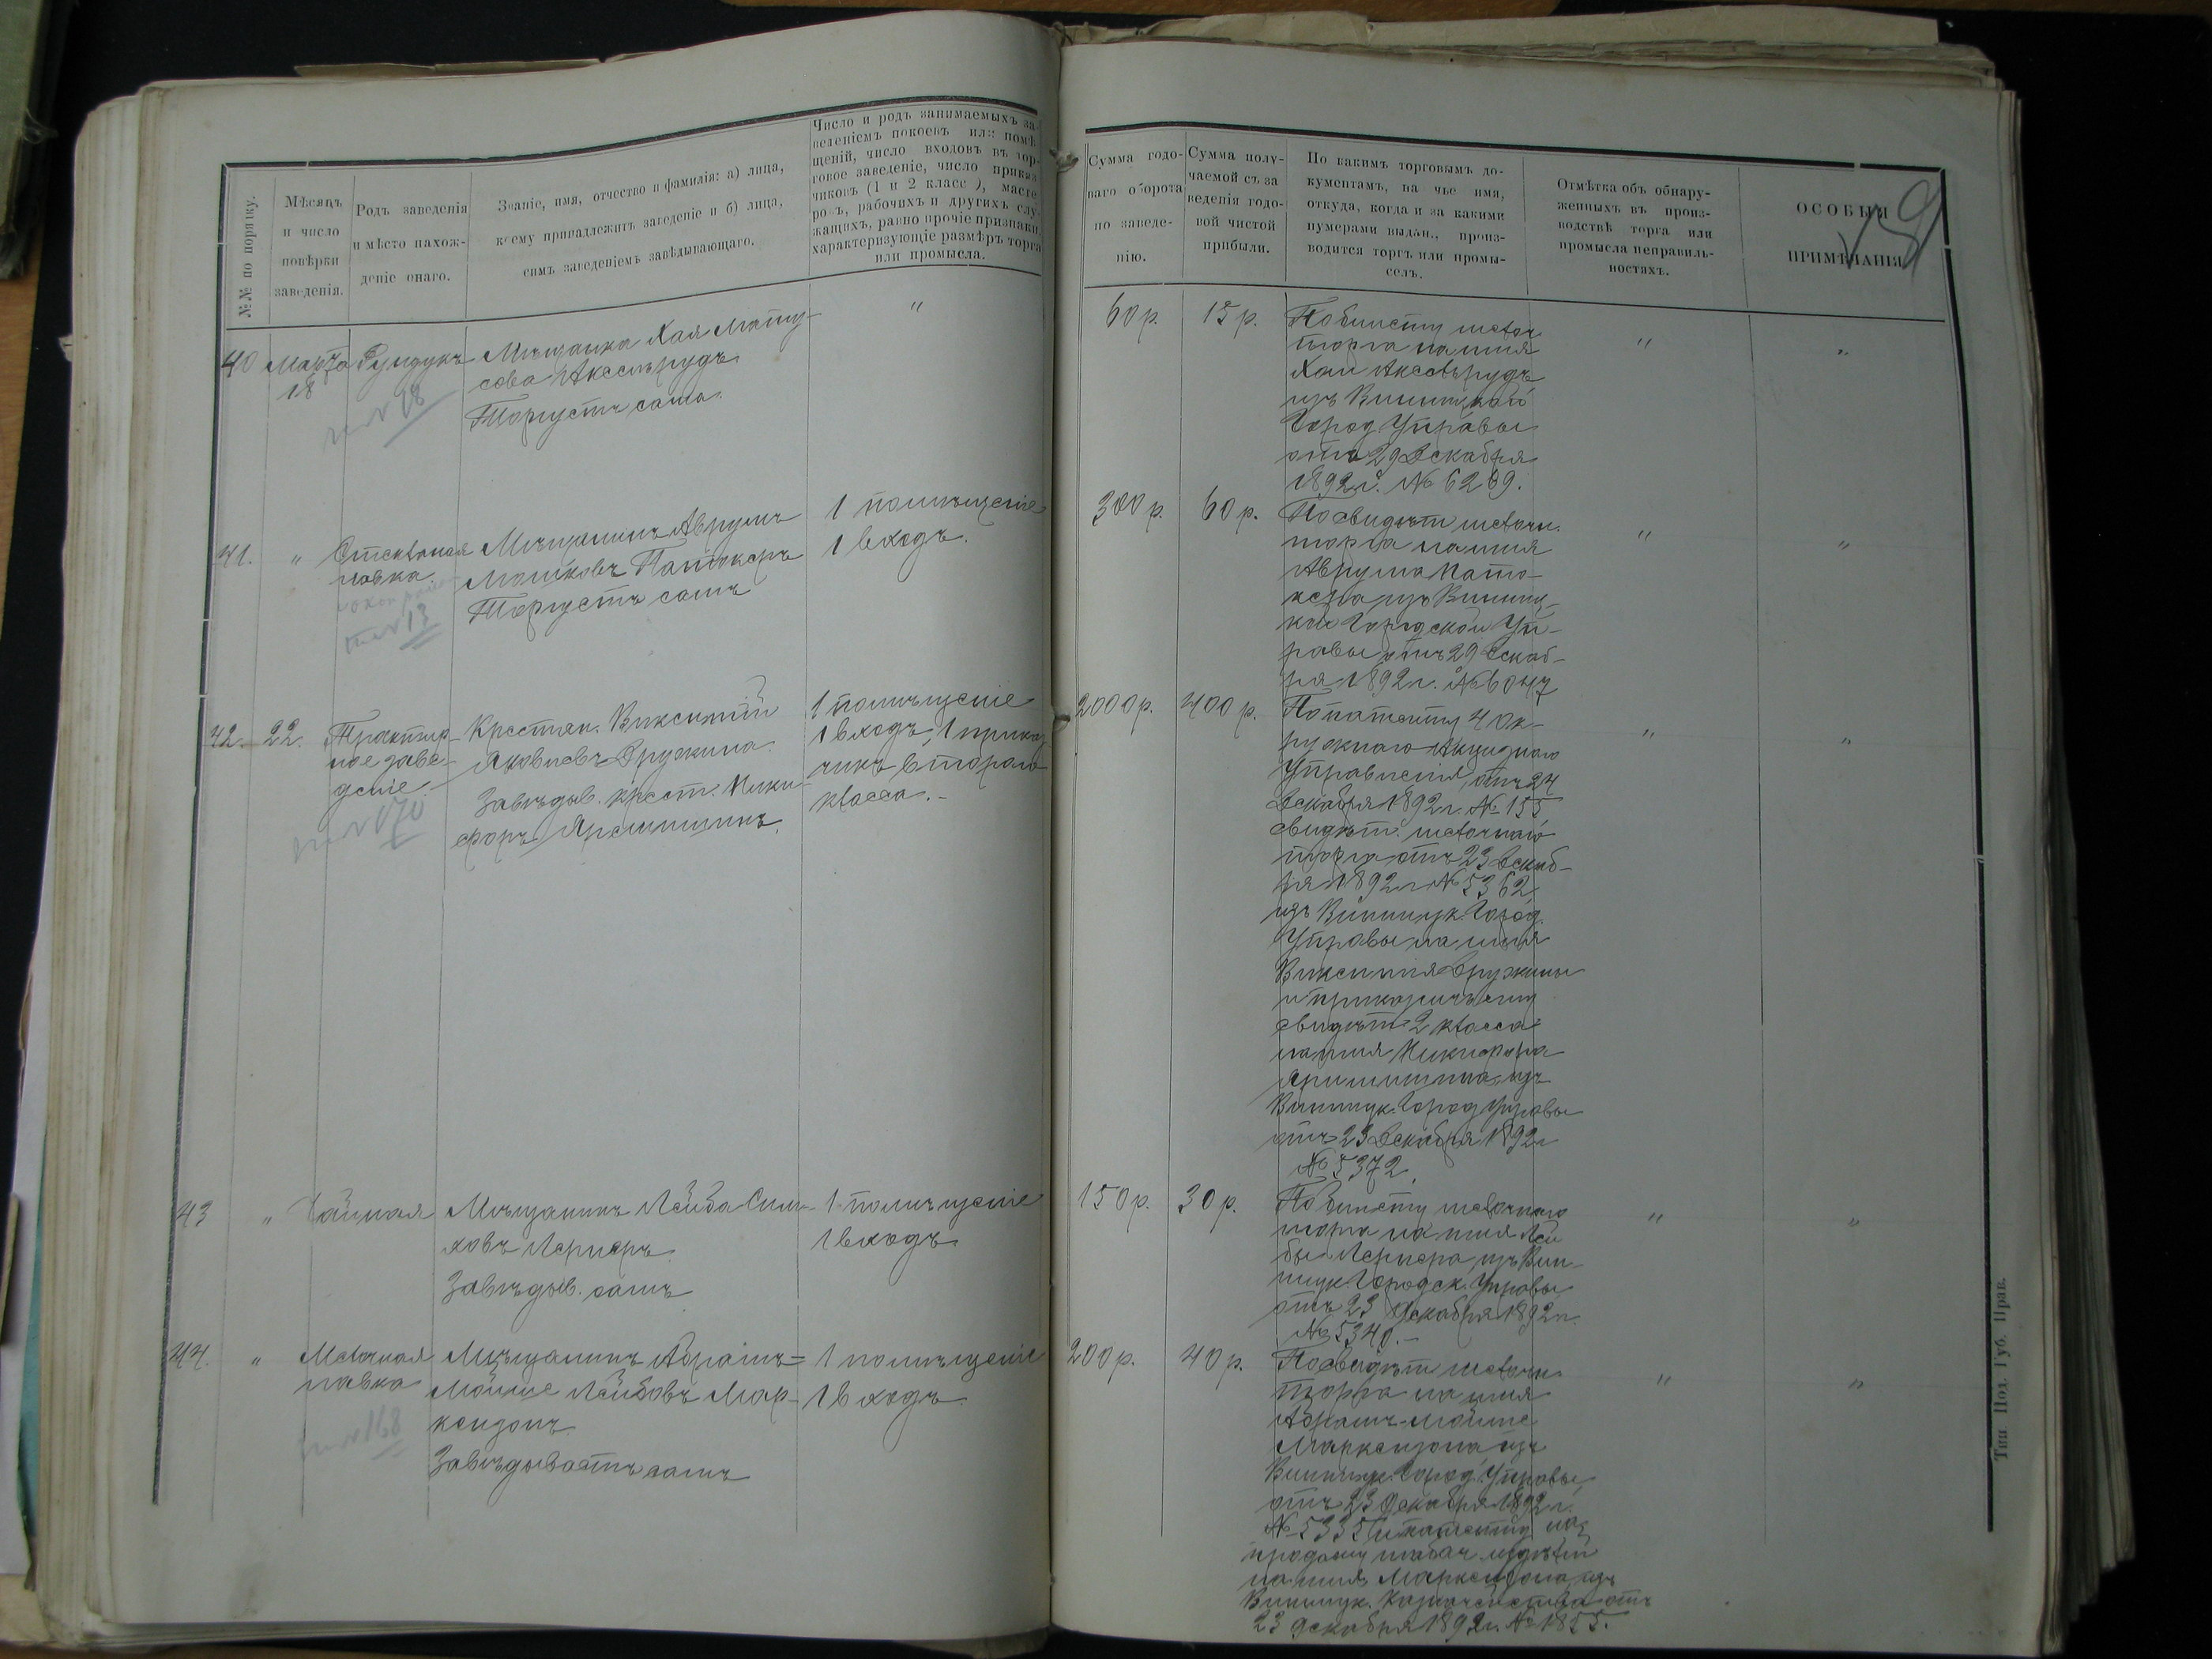 №№ по порядку.
Мѣсяцъ
и число
повѣрки
заведенія.
Родъ заведенія
и мѣсто нахож-
деніе онаго.
Званіе, имя, отчество и фамилія: а) лица,
коему принадлежитъ заведеніе и б) лица,
симъ заведеніемъ завѣдывающаго.
Число и родъ занимаемыхъ за-
веденіемъ покоевъ или помѣ-
щеній, число входовъ въ тор-
говое заведеніе, число прика-
чиковъ (1 и 2 класс ), масте-
ровъ, рабочихъ и другихъ слу-
жащихъ, равно прочіе признаки,
характеризующіе размѣръ торга
или промысла.
Сумма годо-
ваго оборота
по заведе-
нію.
Сумма полу-
чаемой съ за
веденія годо-
вой чистой
прибыли.
По какимъ торговымъ до-
кументамъ, на чье имя,
откуда, когда и за какими
нумерами выдан., произ-
водится торгъ или промы-
селъ.
Отмѣтка объ обнару-
женныхъ въ произ-
водствѣ торга или
промысла неправиль-
ностяхъ.
ОСОБЫЯ
ПРИМѢЧАНІЯ
40 Марта 18 Сундукъ
Мѣщанка Хая Мату-
сова Аксельрудъ
Торгуетъ сама.
"
60 р. 15 р.
По билету мелоч
торга на имя
Хаи Аксельрудъ
изъ Винницкой
Город. Управы
отъ 29 Декабря
1892 г. № 6289.
" "
№ 98
41. "
лавка
№ 13
Мѣщанинъ Аврумъ
Мошковъ Патокеръ
Торгуетъ самъ
1 помѣщеніе
1 входъ.
300 р. 60 р.
По свидѣт мелочн.
торга на имя
Аврума Пато-
кера изъ Винниц-
кой Городской Уп-
равы отъ 29 Декаб-
ря 1892 г. № 6047
" "
42. 22.
Трактир-
ное заве-
деніе.
№ 170
Крестьян. Викентій
Яковлевъ Дружина.
Завѣдыв. крест. Ники-
форъ Яремишинъ.
1 помѣщеніе
1 входъ, 1 прика-
чикъ втораго
класса.-
2000 р. 400 р.
По патенту 4 Ок-
ружнаго Акцизнаго
Управленія отъ 24
Декабря 1892 г. № 155
свидѣт. мелочнаго
торга отъ 23 Декаб-
ря 1892 г № 5362
изъ Винницк. Город.
Управы на имя
Викентія Дружины
и прикащичьему
свидѣт 2 класса
на имя Никифора
Яримишина изъ
Винницк. Город Управы
отъ 23 Декабря 1892 г
№ 5372.
" "
43 " Чайная
Мѣщанинъ Лейба Сим-
ховъ Лернеръ
Завѣдыв. самъ
1 помѣщеніе
1 входъ
150 р. 30 р.
По билету мелочнаго
торга на имя Лей
бы Лернера, изъ Вин-
ницк. Городск. Управы
отъ 23 Декабря 1892 г.
№ 5340.-
" "
44. " Мелочная
лавка
№ 168
Мѣщанинъ Абрамъ=
Мойше Лейбовъ Мар-
кензонъ
Завѣдываетъ самъ
1 помѣщеніе
1 входъ
200 р. 40 р.
По свидѣт мелочн
торга на имя
Абрамъ-Мойше
Маркензона изъ
Винницк. Город. Управы
отъ 23 Декабря 1892 г.
№ 5335 и патенту на
продажу табач. издѣлій
на имя Маркензона изъ
Винницк. Казначейства отъ
23 декабря 1892 г. № 1855.
" "
Тип Под. Губ. Прав.